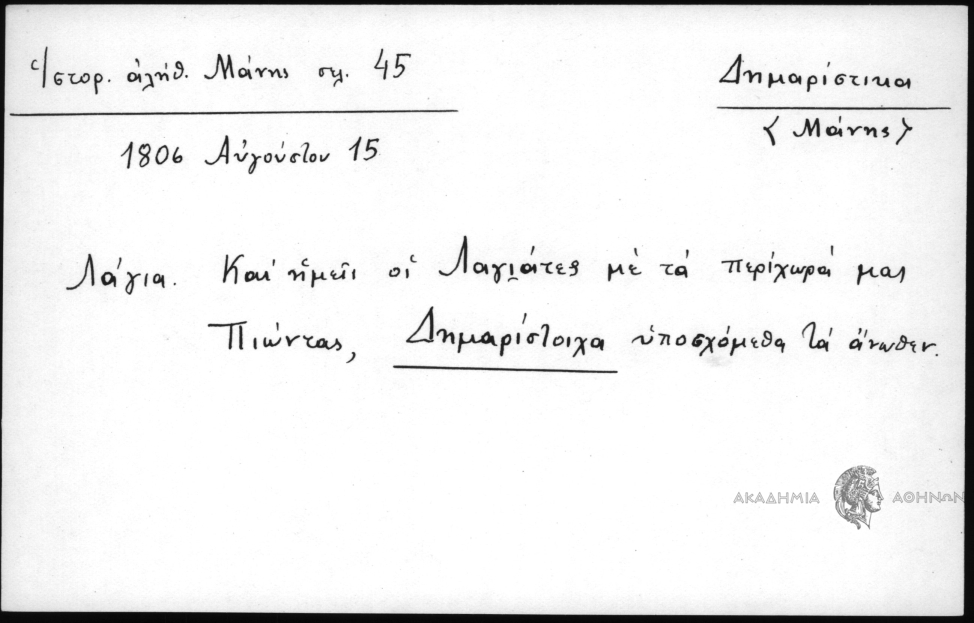 Ἱστορ. ἀλήθ. Μάνης σελ. 45
Δημαρίστικα
<Μάνης>
1806 Αὐγούστου 15
Λάγια. Καὶ ἡμεῖς οἱ Λαγιάτες μὲ τὰ περίχωρά μας
Πιώντας, Δημαρίστοιχα ὑποσχόμεθα τὰ ἄνωθεν.
ΑΚΑΔΗΜΙΑ ΑΘΗΝΩΝ